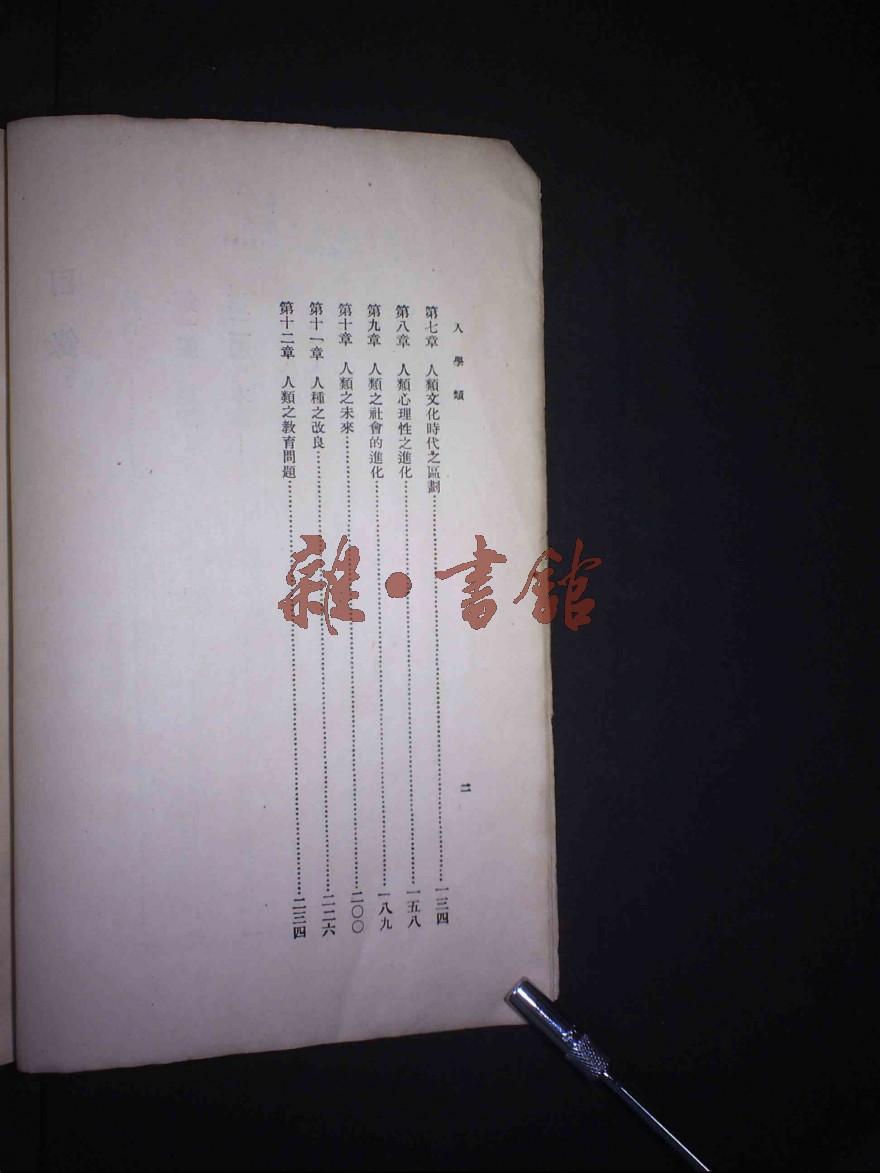 人學類
二
第七章　人類文化時代之區劃………一三四
第八章　人類心理性之進化………一五八
第九章　人類之社會的進化………一八九
第十章　人類之未來………二〇〇
第十一章　人種之改良………二二六
第十二章　人類之教育問題………二三四
雜・書館